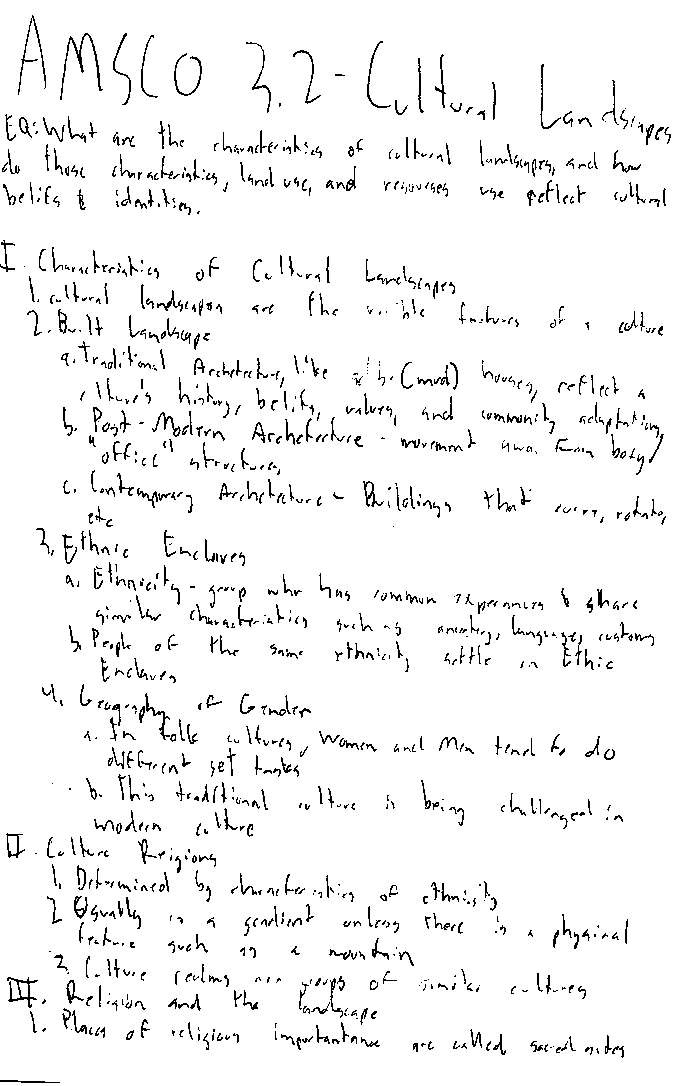 AMSCO 3.2 - Cultural Landscapes
EQ: What are the characteristics of cultural landscapes, and how
do those characteristics, land use, and resources use reflect cultural
belifs & identities.
I. Characteristics of Cultural Landscapes
1. cultural landscapes are the visible features of a culture
2. Built Landscape
a. Traditional Archetecture, like (mud) houses, reflect a
history, belifs, values, and community adaptation,
b. Post-Modern Archetecture - movement away from boxy/
"office" structures
c. Contemporary Archetecture - Buildings that curve, rotate,
etc
3. Ethnic Enclaves
a. Ethnicity - group who has common experiences & share
similar characteristics such as ancestry, language, customs
b. People of the same ethnicity settle in Ethic
Enclaves
4. Geography of Gender
a. In folk cultures, Women and Men tend to do
different set tasks
b. This traditional culture is being challenged in
modern culture
II. Culture Reigions
1. Determined by characteristics of ethnisity
2. Usually is a gradient unless there is a physical
feature such as a mountain
3. Culture realms are groups of similar cultures
III. Religion and the landscape
1. Places of religious importantance are called sacred sites